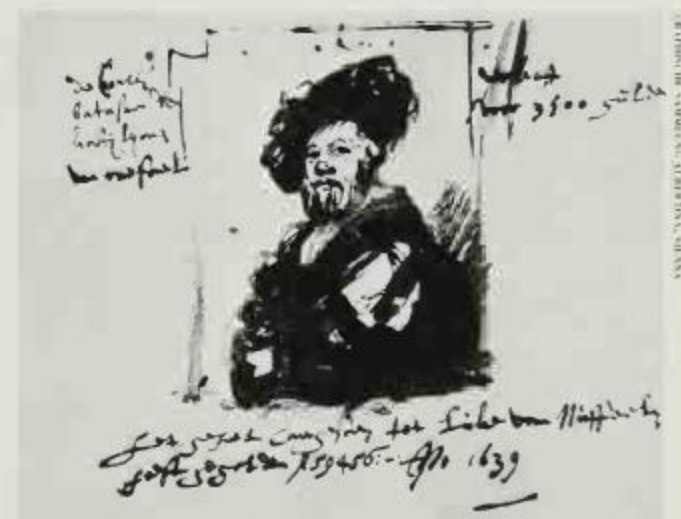 de Conte
batasar de
van raefael
verkoft
voor 3500 gulden
het geheel tot Luke van Nuffeelen
heeft gegolden f59456:- Ano 1639